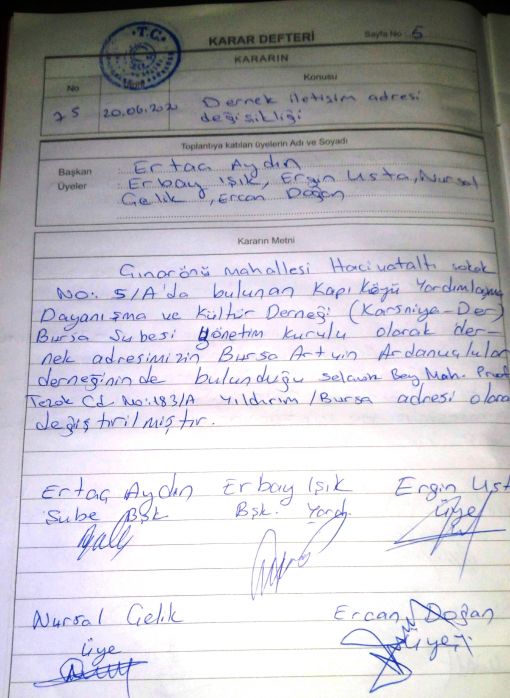 T.C.
KARAR DEFTERİ
Sayfa No 5
KARARIN
No
Konusu
75
20.06.2020
Dernek iletişim adresi
değişikliği
Toplantıya katılan üyelerin Adı ve Soyadı
Başkan : Ertaç Aydın
Üyeler : Erbay Işık, Ergin Usta, Nursal
Çelik, Ercan Doğan
Kararın Metni
Çınarönü mahallesi Hacivataltı sokak
No: 5/A'da bulunan Kapı Köyü Yardımlaşma
Dayanışma ve Kültür Derneği (Karsniya-Der)
Bursa Şubesi yönetim kurulu olarak der-
nek adresimizin Bursa Artvin Ardanuçlular
derneğininde bulunduğu Bey Mah.
Tezok Cd. No:183/A Yıldırım/Bursa adresi olara
değiştirilmiştir.
Ertaç Aydın
Erbay Işık
Ergin Ust
Şube Bşk
Bşk. Yard.
Üye
Nursal Çelik
Ercan Doğan
üye
üye